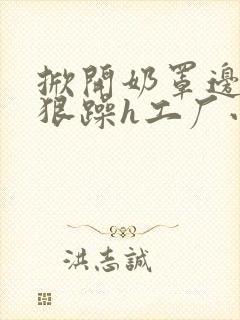 掀開奶罩邊
狠躁h工厂
洪志誠